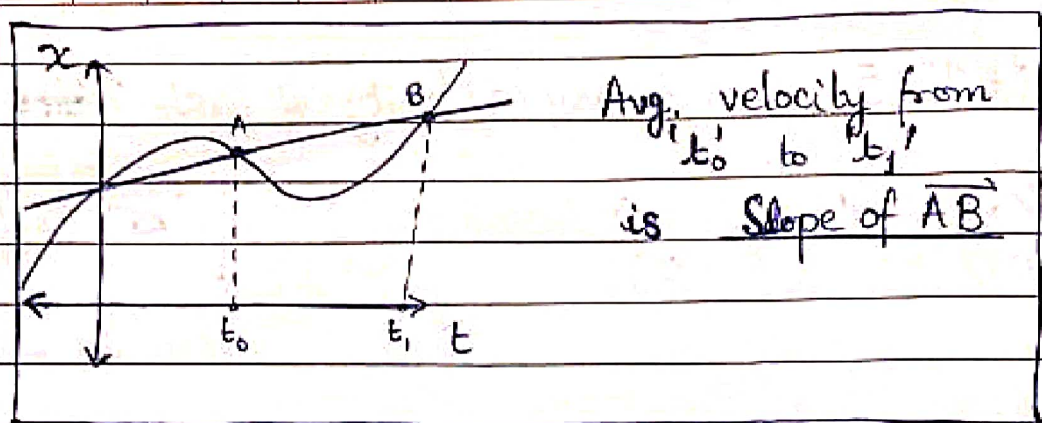 x
A
B
t₀
t₁
t
Avg. velocity from
't₀' to 't₁'
is Slope of AB